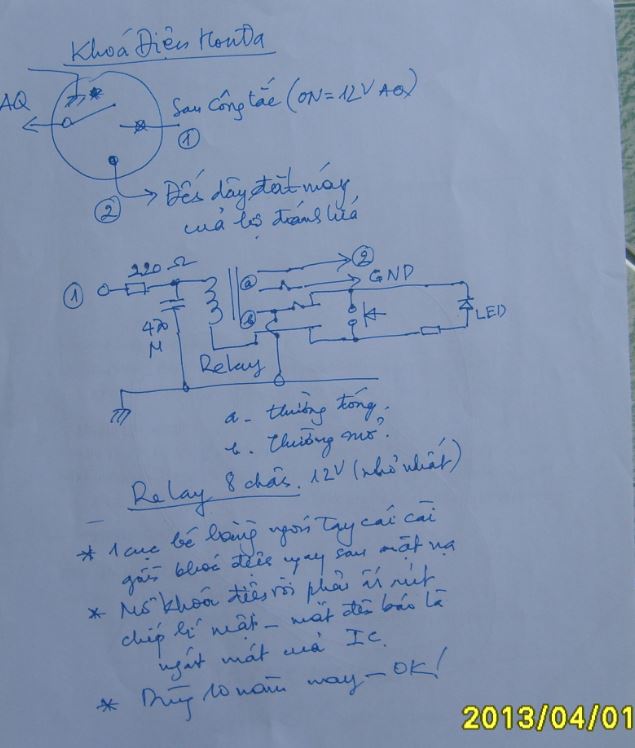 Khoá Điện Honda
AQ
Sau công tắc (ON = 12V AQ)
1
2
Đến dây tắt máy
của bộ đánh lửa
1
220 Ω
470
M
Relay
a
b
2
GND
LED
a - thường đóng.
b. thường mở.
Relay 8 chân. 12V (nhỏ nhất)
* 1 cục bé bằng ngón tay cái cài
gần khoá điện ngay sau mặt nạ
* Mở khoá điện rồi phải ấn nút
chíp bí mật - mắt đèn báo là
ngắt mát của IC.
* Dùng 10 năm nay - OK!
2013/04/01